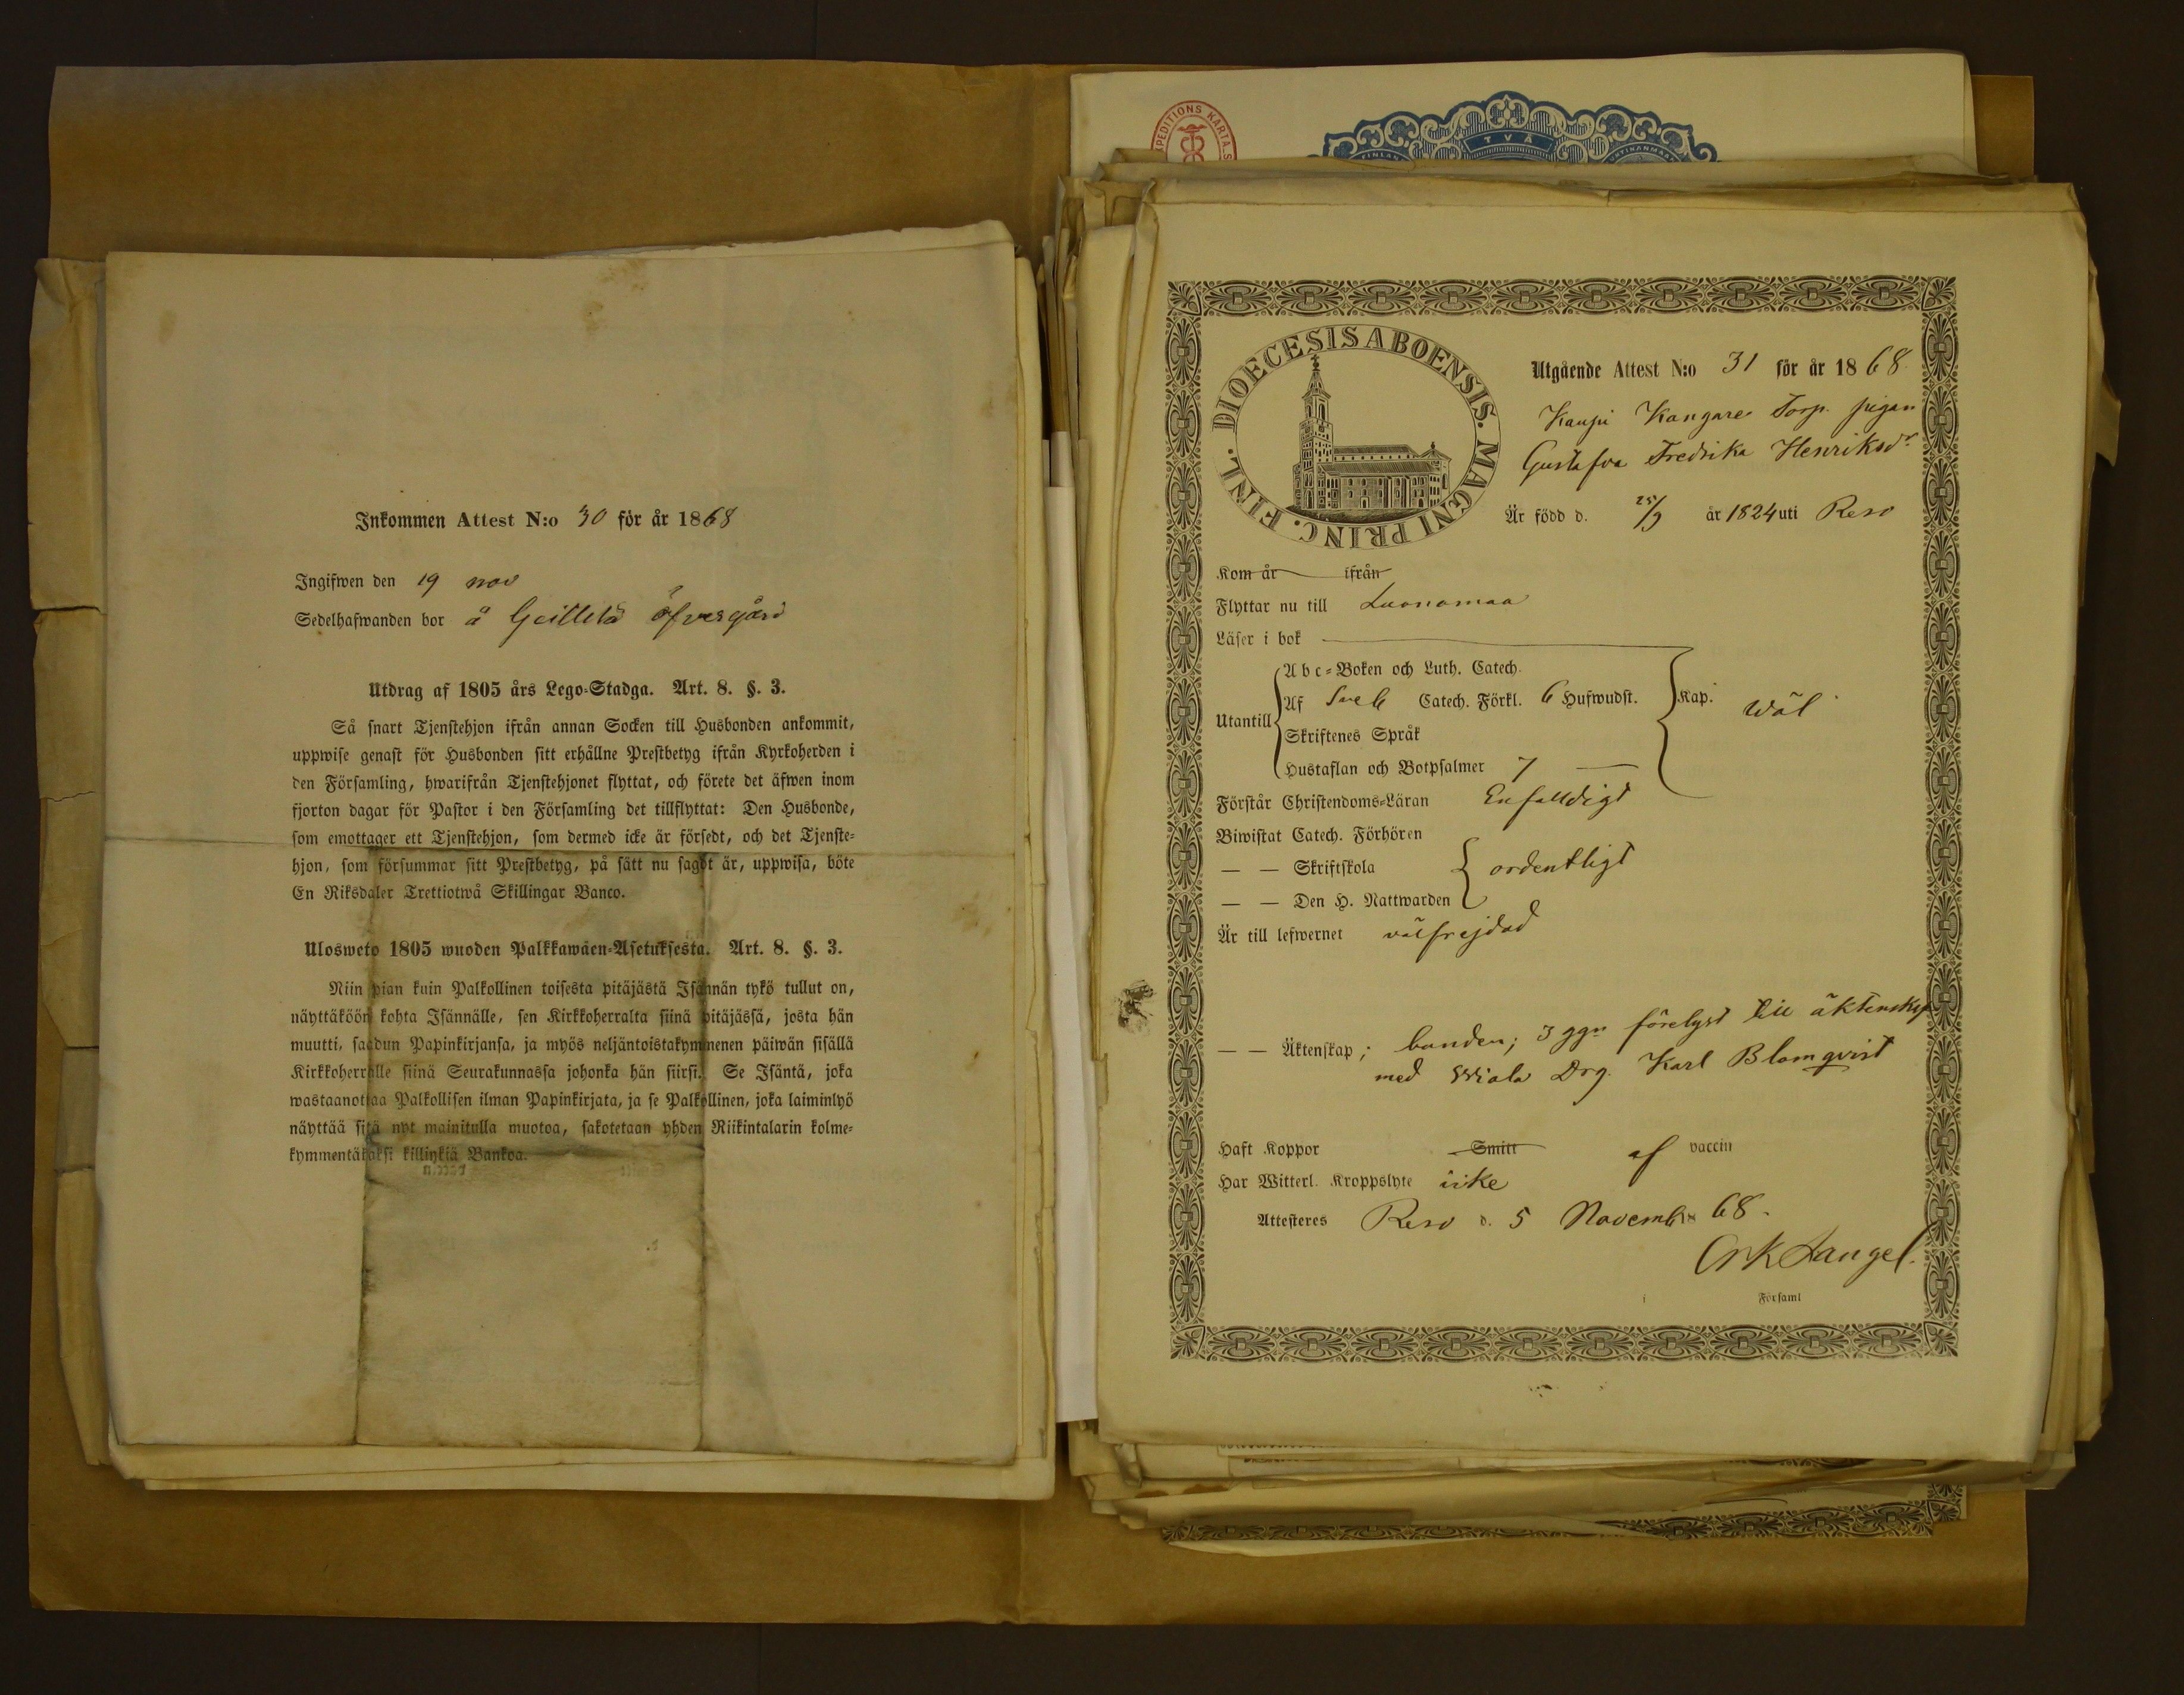 Inkommen Attest N:o 30 för år 1868
Ingifwen den 19 nov
Sedelhafwanden bor å öfvergård
Utdrag af 1805 års Lego-Stadga. Art. 8. §. 3.
Så snart Tjenstehjon ifrån annan Socken till Husbonden ankommit,
uppwise genast för Husbonden sitt erhållne Prestbetyg ifrån Kyrkoherden i
den Församling, hwarifrån Tjenstehjonet flyttat, och förete det äfwen inom
fjorton dagar för Pastor i den Församling det tillflyttat: Den Husbonde,
som emottager ett Tjenstehjon, som dermed icke är försedt, och det Tjenste-
hjon, som försummar sitt Prestbetyg, på sätt nu sagdt är, uppwisa, böte
En Riksdaler Trettiotwå Skillingar Banco.
Ulosweto 1805 wuoden Palkkawäen-Asetuksesta. Art. 8. §. 3.
Niin pian kuin Palkollinen toisesta pitäjästä Isännän tykö tullut on,
näyttäköön kohta Isännälle, sen Kirkkoherralta siinä pitäjässä, josta hän
muutti, saadun Papinkirjansa, ja myös neljäntoistakymmenen päiwän sisällä
Kirkkoherralle siinä Seurakunnassa johonka hän siirsi. Se Isäntä, joka
wastaanottaa Palkollisen ilman Papinkirjata, ja se Palkollinen, joka laiminlyö
näyttää sitä nyt mainitulla muotoa, sakotetaan yhden Riikintalarin kolme-
kymmentäkaksi killinkiä Bankoa.
PEDITIONS KARTA.S
TVÅ
FINLAN
DIOECESIS ABOENSIS. MAGNI PRINC. FINL.
Utgående Attest N:o 31 för år 1868.
Kaupi Kangare Torp. pigan
Gustafva Fredrika Henriksdr.
Är född d. 25/9 år 1824 uti Reso
Kom år ifrån
Flyttar nu till Luonomaa
Läser i bok
Abc-Boken och Luth. Catech.
Utantill Af Sveb Catech. Förkl. 6 Hufwudst. Kap. wäl
Skriftenes Språk
Hustaflan och Botpsalmer 7
Förstår Christendoms-Läran Enfalldigt
Biwistat Catech. Förhören
— — Skriftskola ordentligt
— — Den H. Nattwarden
Är till lefwernet välfrejdad
— — Äktenskap; bunden; 3 ggr förelyst till äktenskap
med Wiala Drg. Karl Blomqvist
Haft Koppor Smitt af vaccin
Har Witterl. Kroppslyte icke
Attesteres Reso d. 5 Novemb 18 68.
Langel.
i Församl